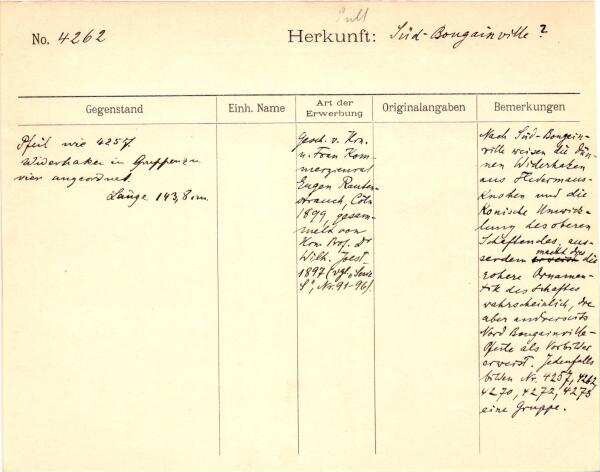 Pult
No. 4262
Herkunft: Süd-Bougainville?
Gegenstand
Einh. Name
Art der
Erwerbung
Originalangaben
Bemerkungen
Pfeil wie 4257
Widerhaken in Gruppen zu
vier angeordnet
Länge 143,8 cm.
Gesch. v. Hrn.
u. Frau Kom-
merzienrat
Eugen Rauten-
strauch, Cöln
1899, gesam-
melt von
Hrn Prof. Dr
Wilh. Joest
1897 (vgl. „Serie
S", Nr. 91-96).
Nach Süd-Bougain-
ville weisen die dün-
nen Widerhaken
aus Fledermaus-
knochen und die
konische Umwick-
lung des oberen
Schaftendes, aus-
serdem macht dies die
rohere Ornamen-
tik des Schaftes
wahrscheinlich, die
aber andrerseits
Nord Bougainville-
Pfeile als Vorbilder
erweist. Jedenfalls
bilden Nr. 4257, 4262,
4270, 4272, 4273
eine Gruppe.